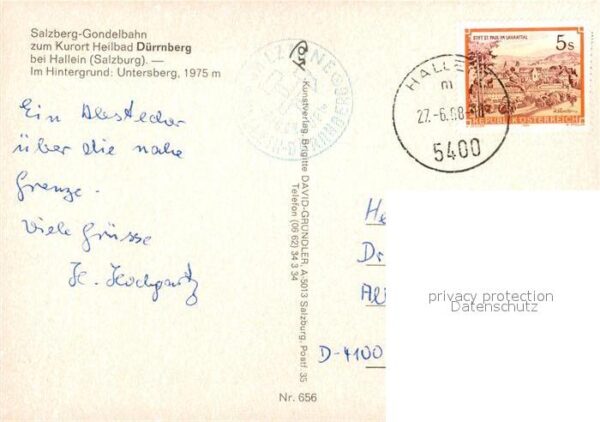 Salzberg-Gondelbahn
zum Kurort Heilbad Dürrnberg
bei Hallein (Salzburg). —
Im Hintergrund: Untersberg, 1975 m
Ein Abstecher
über die nahe
Grenze.
Viele Grüsse
Kunstverlag. Brigitte DAVID-GRUNDLER, A-5013 Salzburg, Postf. 35
Telefon (06 62) 34 3 34
Nr. 656
STIFT ST. PAUL IM LAVANTTAL
5 S
REPUBLIK ÖSTERREICH
HALLEIN
m
27.-6.88
5400
He
Dr
Al
D-4100
privacy protection
Datenschutz